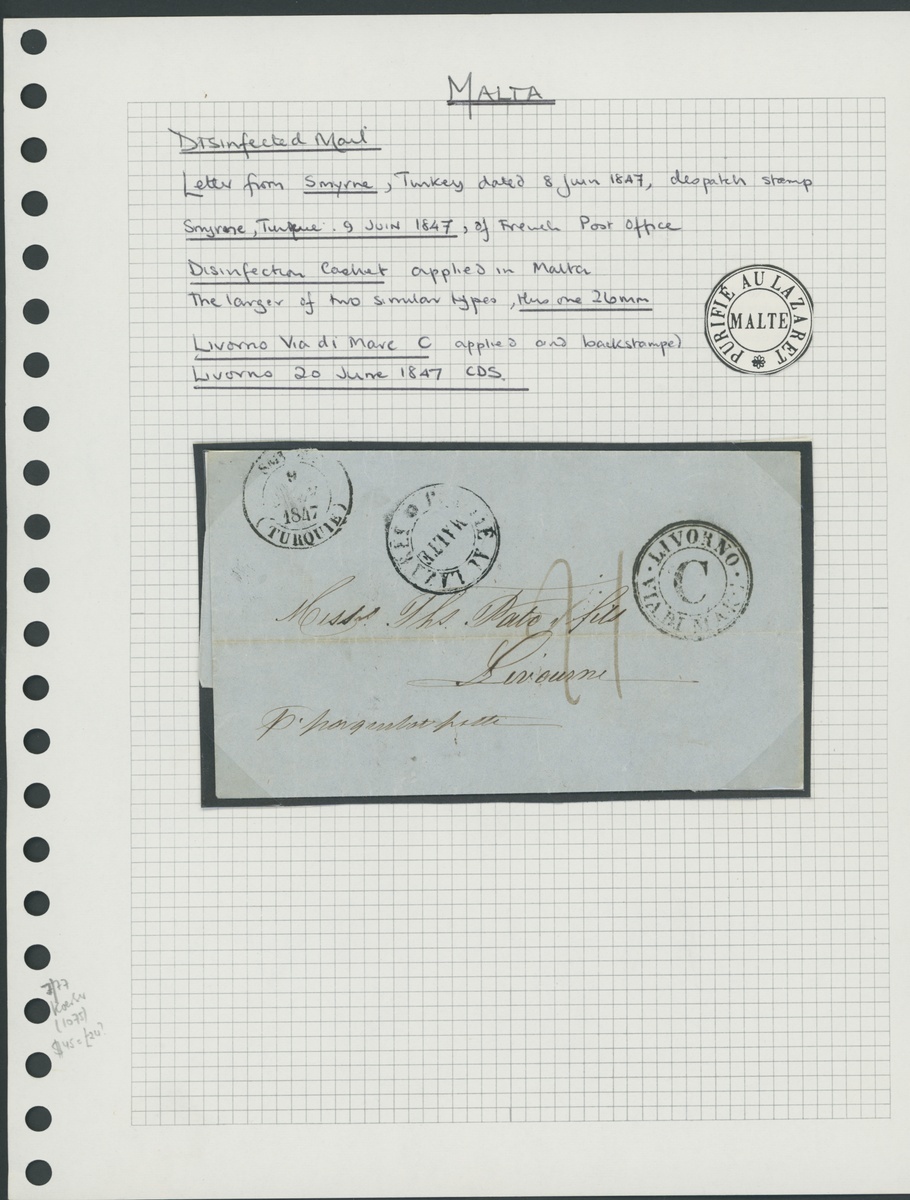 MALTA
Disinfected Mail
Letter from Smyrne, Turkey dated 8 Juin 1847, despatch stamp
Smyrne, Turquie. 9 JUIN 1847, of French Post Office
Disinfection Cachet applied in Malta
The larger of two similar types, this one 26mm
PURIFIÉ AU LAZARET
MALTE
Livorno Via di Mare C applied and backstamped
Livorno 20 June 1847 CDS.
9
1847
(TURQUIE)
MALTE
AU
LIVORNO
C
VIA DI MARE
21
Messrs. Ths. Pato & fils
Livourne
7/77
(1075)
$45 =